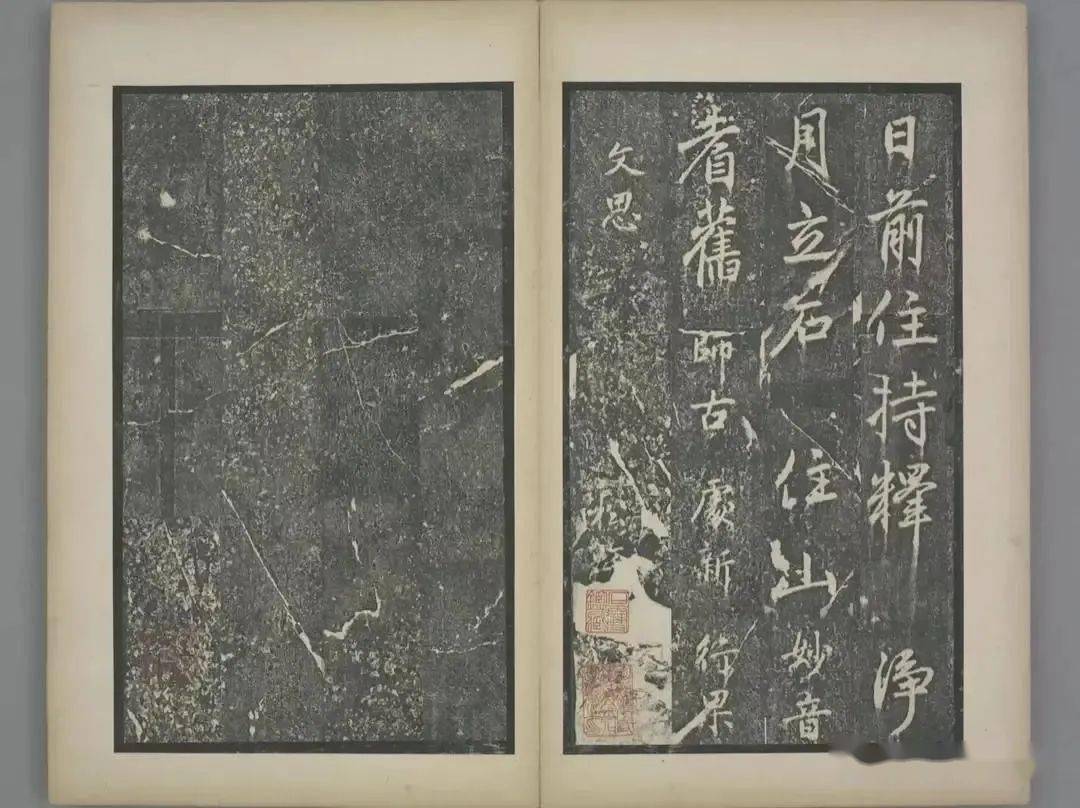 日前住持釋 淨
月立石 住山妙音
耆舊 師古 處新 行果
文思